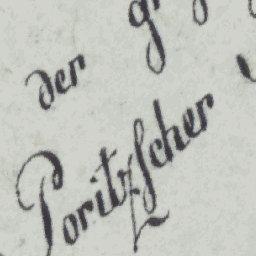 der
Poritzscher